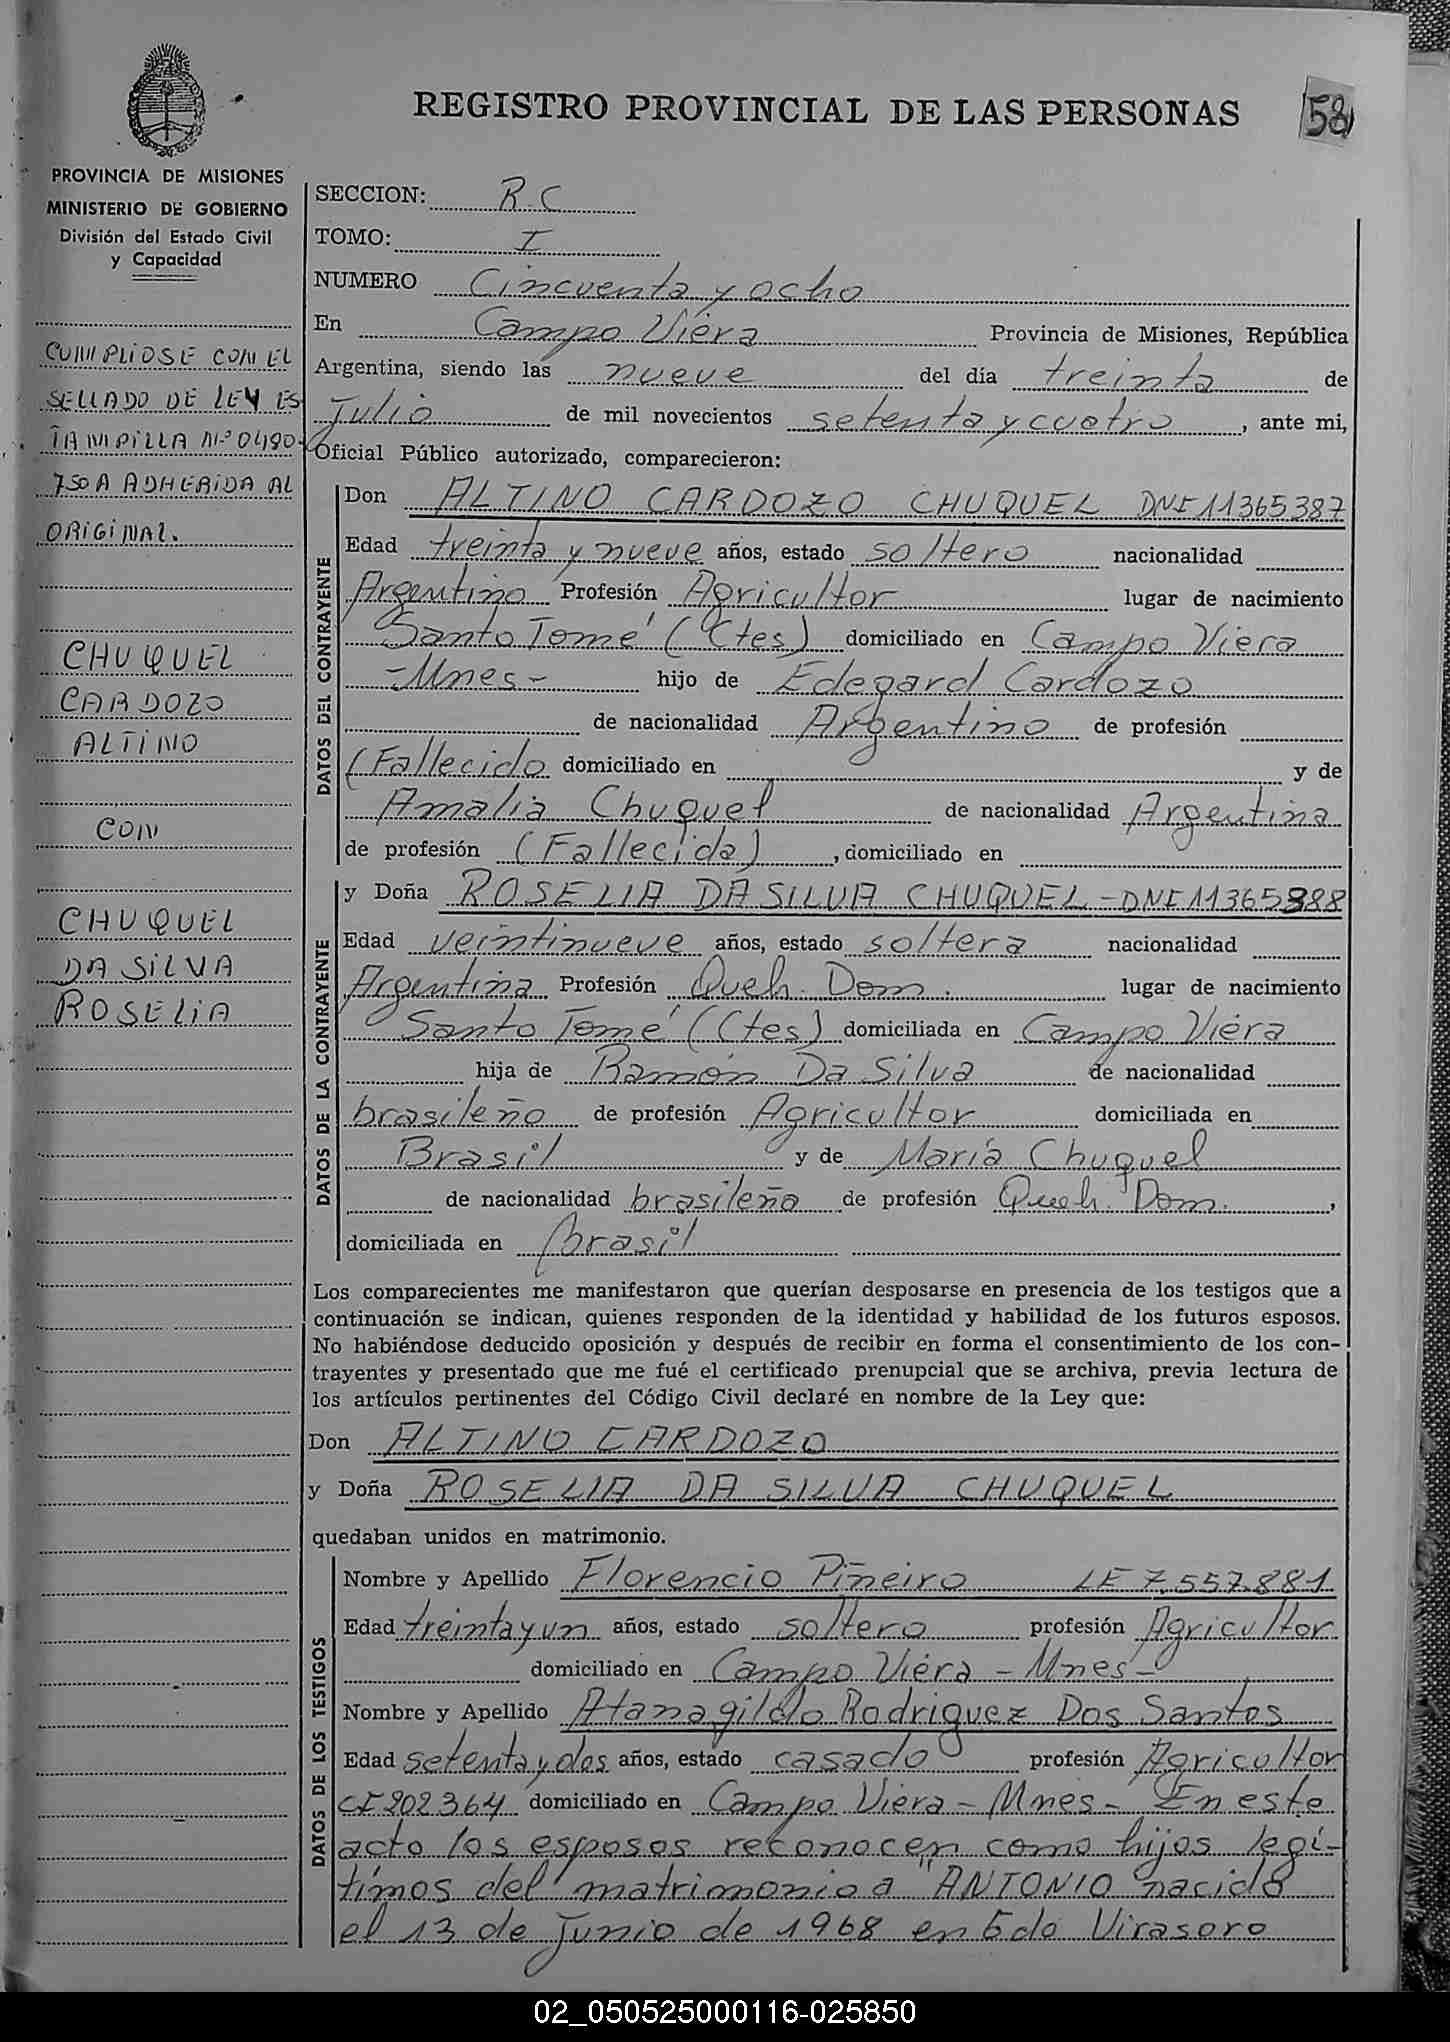 REGISTRO PROVINCIAL DE LAS PERSONAS
58
PROVINCIA DE MISIONES
MINISTERIO DE GOBIERNO
División del Estado Civil
y Capacidad
CUMPLIOSE CON EL
SELLADO DE LEY ES
TAMPILLA Nº 0490
750 A ADHERIDA AL
ORIGINAL.
CHUQUEL
CARDOZO
ALTINO
CON
CHUQUEL
DA SILVA
ROSELIA
SECCION: R.C
TOMO: I
NUMERO Cincuenta y ocho
En Campo Viera Provincia de Misiones, República
Argentina, siendo las nueve del día treinta de
Julio de mil novecientos setenta y cuatro, ante mi,
Oficial Público autorizado, comparecieron:
DATOS DEL CONTRAYENTE
Don ALTINO CARDOZO CHUQUEL DNI 11365387
Edad treinta y nueve años, estado soltero nacionalidad
Argentino Profesión Agricultor lugar de nacimiento
Santo Tomé (Ctes) domiciliado en Campo Viera
-Mnes- hijo de Edegard Cardozo
de nacionalidad Argentino de profesión
(Fallecido domiciliado en y de
Amalia Chuquel de nacionalidad Argentina
de profesión (Fallecida), domiciliado en
DATOS DE LA CONTRAYENTE
y Doña ROSELIA DA SILVA CHUQUEL - DNI 11365388
Edad veintinueve años, estado soltera nacionalidad
Argentina Profesión Queh. Dom. lugar de nacimiento
Santo Tomé (Ctes) domiciliada en Campo Viera
hija de Ramón Da Silva de nacionalidad
brasileño de profesión Agricultor domiciliada en
Brasil y de María Chuquel
de nacionalidad brasileña de profesión Queh. Dom.,
domiciliada en Brasil
Los comparecientes me manifestaron que querían desposarse en presencia de los testigos que a
continuación se indican, quienes responden de la identidad y habilidad de los futuros esposos.
No habiéndose deducido oposición y después de recibir en forma el consentimiento de los con-
trayentes y presentado que me fué el certificado prenupcial que se archiva, previa lectura de
los artículos pertinentes del Código Civil declaré en nombre de la Ley que:
Don ALTINO CARDOZO
y Doña ROSELIA DA SILVA CHUQUEL
quedaban unidos en matrimonio.
DATOS DE LOS TESTIGOS
Nombre y Apellido Florencio Piñeiro LE 7.557.881
Edad treinta y un años, estado soltero profesión Agricultor
domiciliado en Campo Viera - Mnes-
Nombre y Apellido Atanagildo Rodriguez Dos Santos
Edad setenta y dos años, estado casado profesión Agricultor
CI 202364 domiciliado en Campo Viera - Mnes - En este
acto los esposos reconocen como hijos legí-
timos del matrimonio a "ANTONIO nacido
el 13 de Junio de 1968 en Gdo Virasoro
02_050525000116-025850